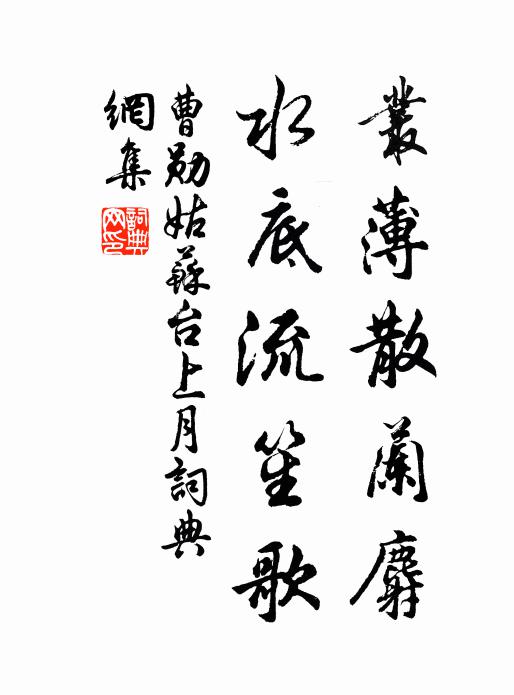 叢薄散蘭麝
水底流笙歌
曹勛姑蘇台上月詞典
網集
詞典
网印